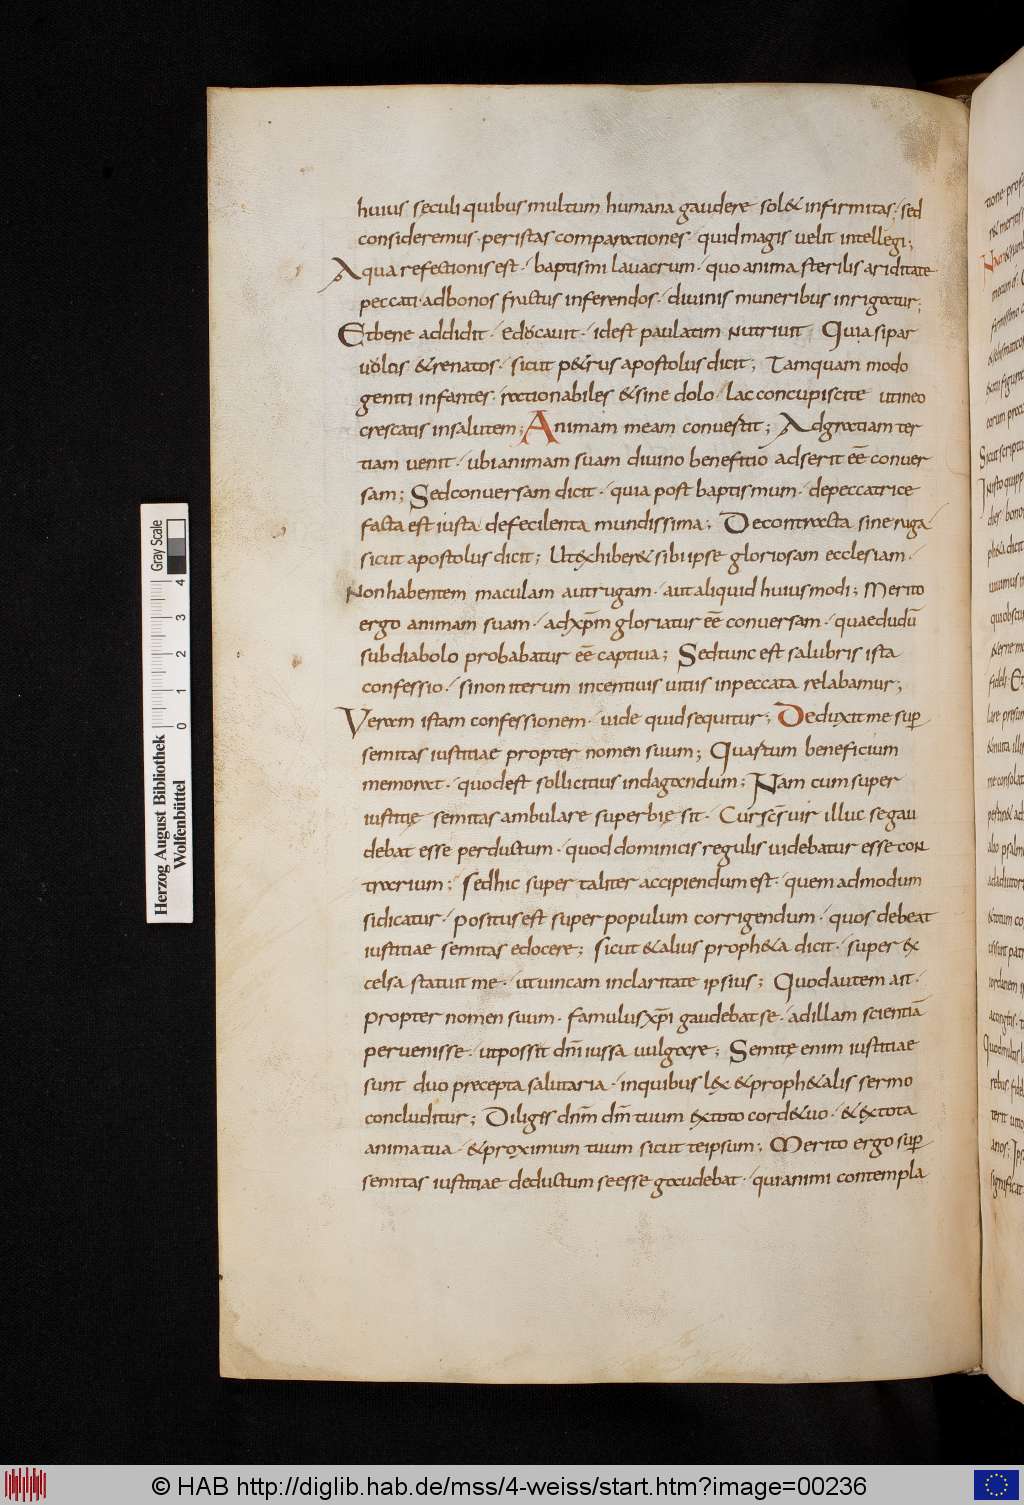 huius sęculi quibus multum humana gaudere sol& infirmitas; sed
consideremus · per istas comparationes quid magis uelit intellegi;
Aqua refectionis est · baptismi lauacrum · quo anima sterilis ariditate
peccati · ad bonos fructus inferendos · diuinis muneribus inrigatur;
Et bene addidit · educauit · id est paulatim nutriuit Quia si par
uolos & renatos · sicut p&rus apostolus dicit; Tamquam modo
geniti infantes · rationabiles & sine dolo · lac concupiscite ut in eo
crescatis in salutem; Animam meam conuertit; Ad gratiam ter
tiam uenit · ubi animam suam diuino beneficio adserit eē conuer
sam; Sed conuersam dicit · quia post baptismum · de peccatrice
facta est iusta de feculenta mundissima; De contracta sine ruga
sicut apostolus dicit; Ut exhiber& sibi ipse gloriosam ecclesiam ·
Non habentem maculam aut rugam · aut aliquid huiusmodi; Merito
ergo animam suam · ad xp̄m gloriatur eē conuersam · quae dudū
sub diabolo probabatur eē captiua; Sed tunc est salubris ista
confessio · si non iterum incentiuis uitiis in peccata relabamur;
Veram istam confessionem · uide quid sequitur; Deduxit me sup̄
semitas iustitiae propter nomen suum; Quartum beneficium
memorat · quod est sollicitius indagandum; Nam cum super
iustitię semitas ambulare superbię sit · Cur s̄c̄s uir illuc se gau
debat esse perductum · quod dominicis regulis uidebatur esse con
trarium; Sed hic super taliter accipiendum est · quem admodum
si dicatur · positus est super populum corrigendum · quos debeat
iustitiae semitas edocere; sicut & alius proph&a dicit · super ex
celsa statuit me · ut uincam in claritate ipsius; Quod autem ait ·
propter nomen suum · famulus xp̄i gaudebat se · ad illam scientiā
peruenisse · ut possit dn̄i iussa uulgare; Semitę enim iustitiae
sunt duo precepta salutaria · in quibus lex & proph&alis sermo
concluditur; Diliges dn̄m dm̄ tuum ex toto corde tuo · & ex tota
anima tua · & proximum tuum sicut te ipsum; Merito ergo sup̄
semitas iustitiae deductum se esse gaudebat · qui animi contempla
Herzog August Bibliothek
Wolfenbüttel
0 1 2 3 4
Gray Scale
© HAB http://diglib.hab.de/mss/4-weiss/start.htm?image=00236